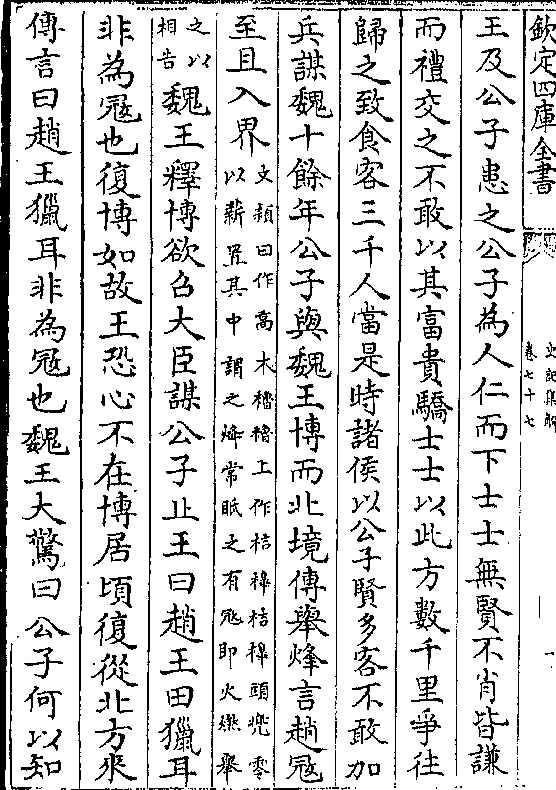 欽定四庫全書
史記集解
卷七十七
一
王及公子患之公子為人仁而下士士無賢不肖皆謙
而禮交之不敢以其富貴驕士士以此方數千里爭往
歸之致食客三千人當是時諸侯以公子賢多客不敢加
兵謀魏十餘年公子與魏王博而北境傳舉烽言趙冦
至且入界
文穎曰作高木櫓櫓上作桔橰桔橰頭兠零
以薪置其中謂之烽常眂之有冦即火燃舉
之以
相告
魏王釋博欲召大臣謀公子止王曰趙王田獵耳
非為冦也復博如故王恐心不在博居頃復從北方來
傳言曰趙王獵耳非為冦也魏王大驚曰公子何以知